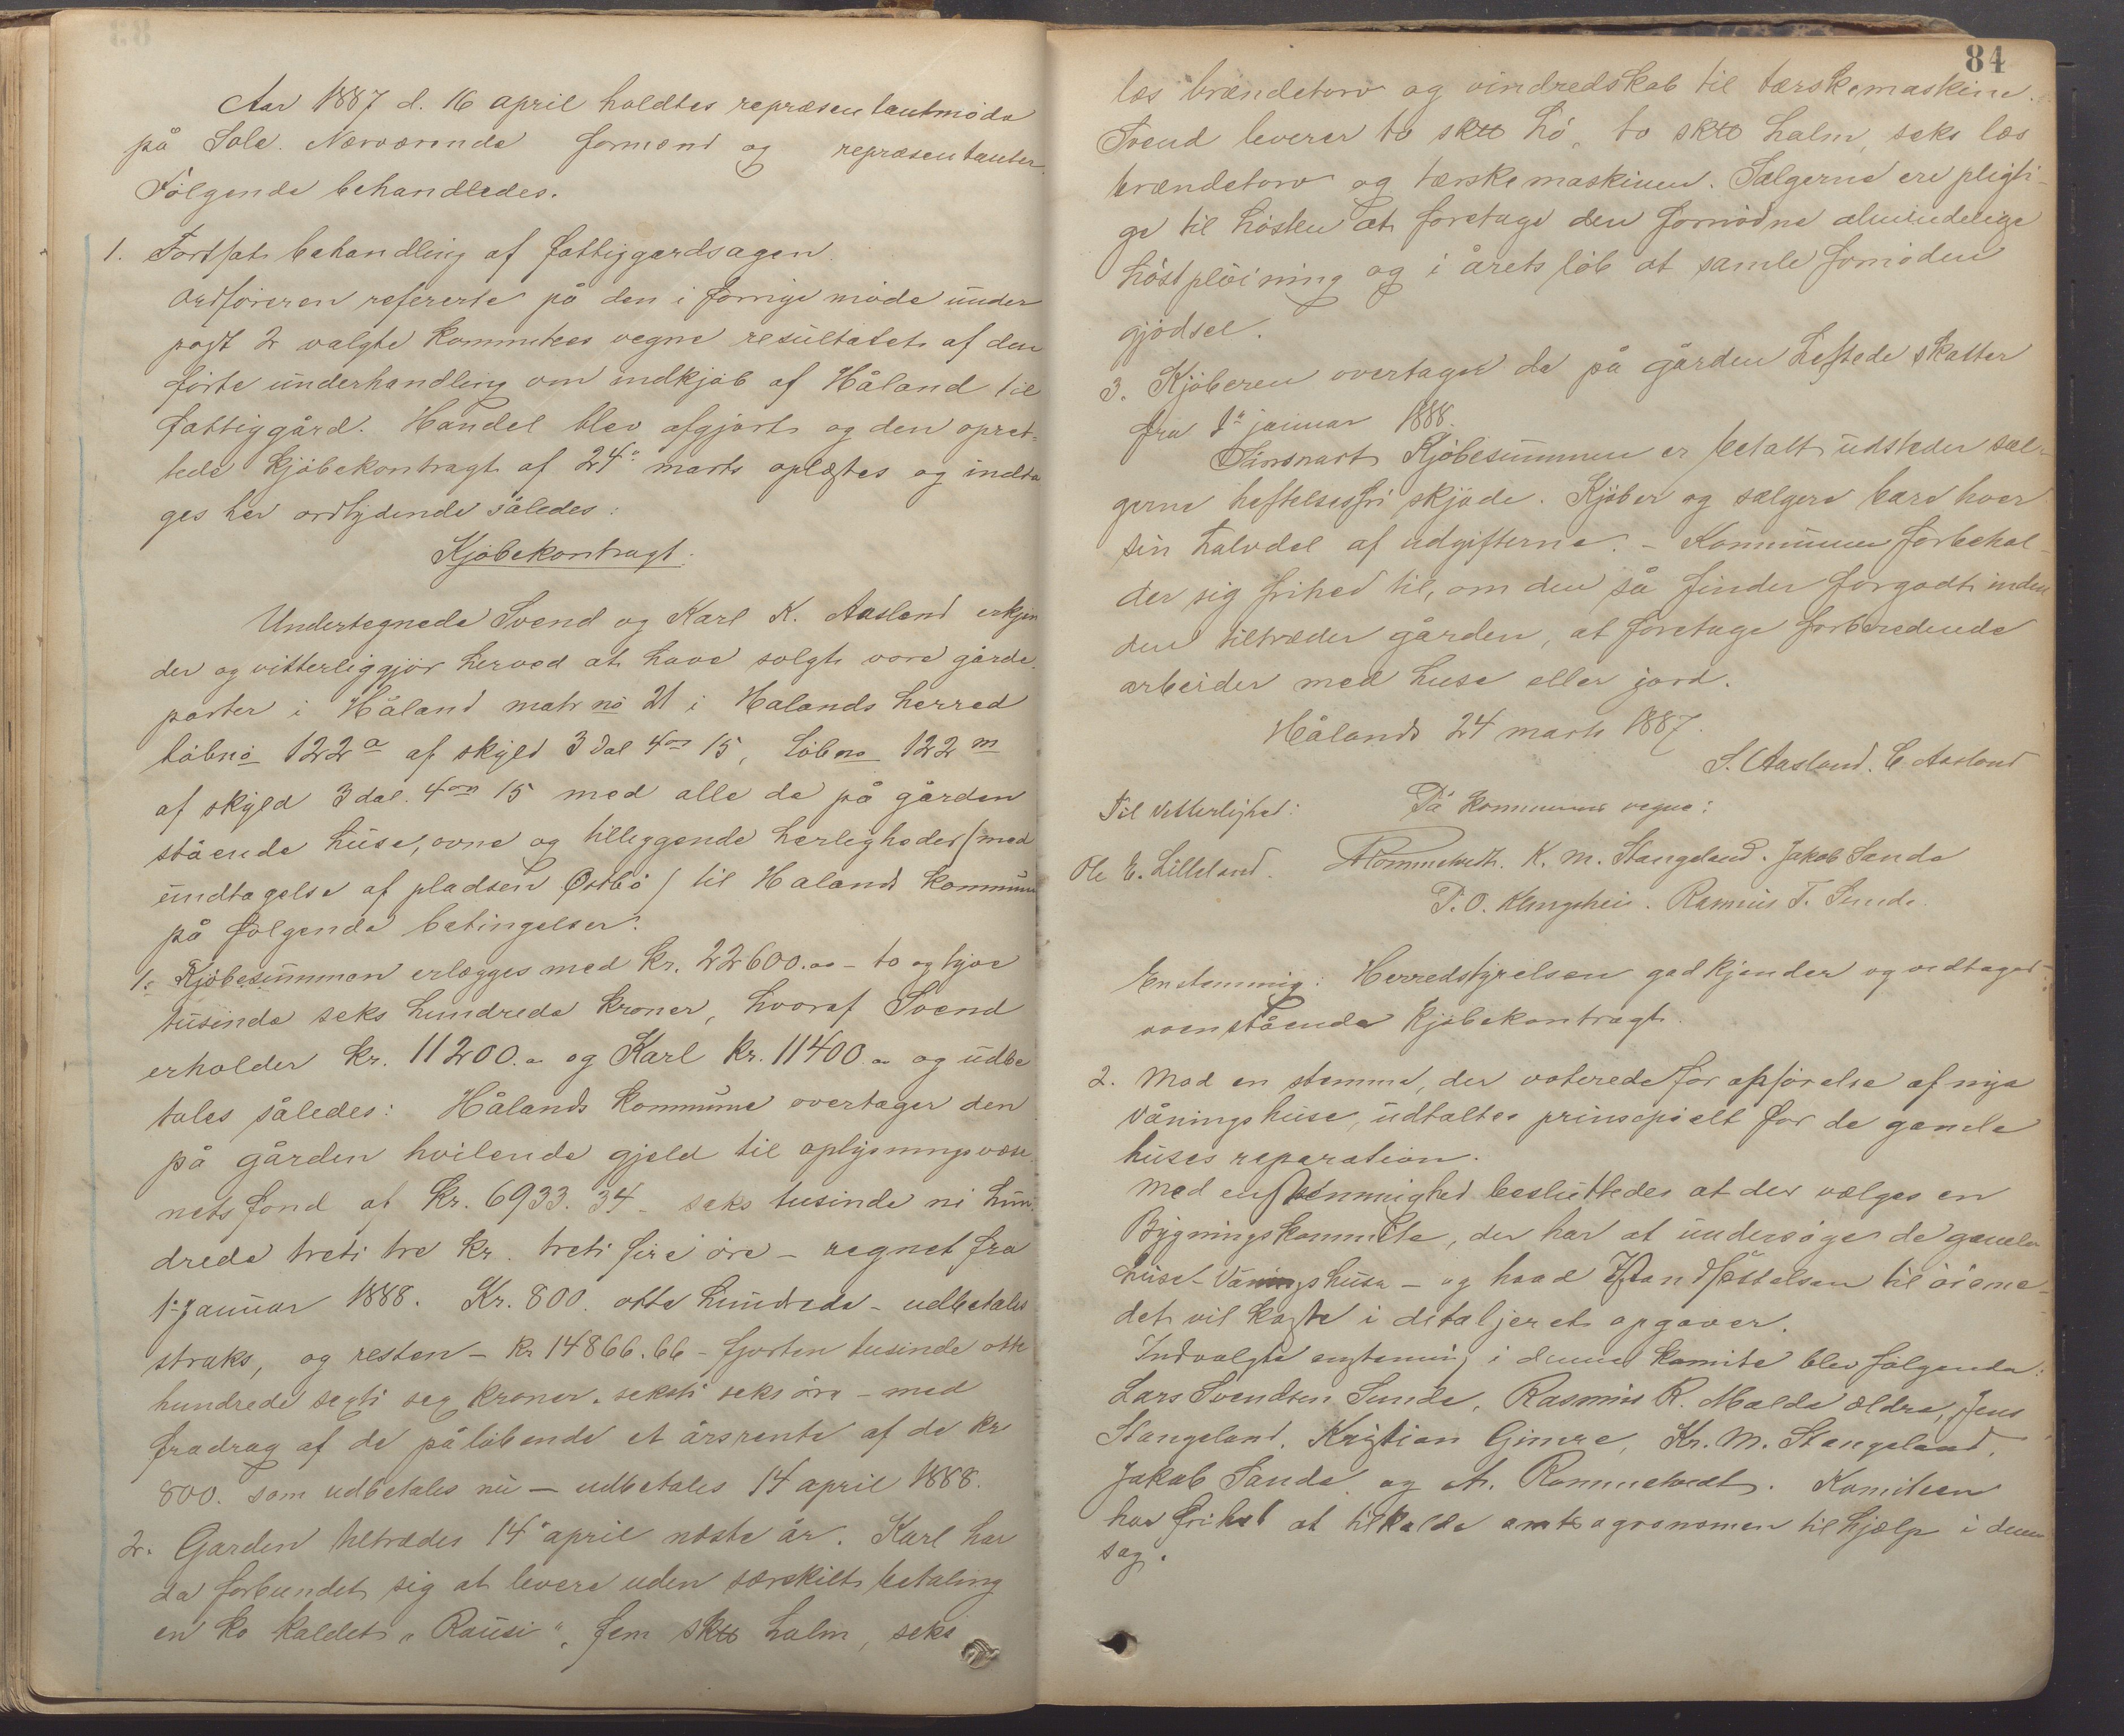 Aar 1887 d. 16 april holdtes repræsentantmöde
på Sole. Nærværende formænd og repræsentanter.
Fölgende behandledes.
1. Fortsat behandling af fattiggårdsagen.
Ordföreren refererte på den i forrige möde under
post 2 valgte kommitees vegne resultatet af den
förte underhandling om indkjöb af Håland til
fattiggård. Handel blev afgjort og den opret-
tede kjöbekontragt af 24" marts oplæstes og indta
ges her ordlydende således:
Kjöbekontragt.
Undertegnede Svend og Karl K. Aasland erkjen
der og vitterliggjör herved at have solgt vore gårde.
parter i Håland matr no 21 i Halands herred
löbno 122 a af skyld 3 dal 4 ort 15, Löbno 122 m
af skyld 3 dal. 4 ort 15 med alle de på gården
stående huse, ovne og tilleggende herligheder / med
undtagelse af pladsen Østbö / til Haland kommune
på fölgende betingelser:
1. Kjöbesummen erlægges med kr. 22600.00 - to og tyve
tusinde seks hundrede kroner, hvoraf Svend
erholder kr. 11200.00 og Karl kr. 11400.00 og udbe
tales således: Hålands kommune overtager den
på gården hvilende gjeld til oplysningsvæse
nets fond af kr. 6933.34 - seks tusinde ni hun-
drede treti tre kr. treti fire öre - regnet fra
1" januar 1888. Kr. 800. otte hundrede - udbetales
straks, og resten - kr 14866.66 - fjorten tusinde otte
hundrede segsti seg kroner. seksti seks öre - med
fradrag af de påløbende et årsrente af de kr
800. som udbetales nu - udbetales 14 april 1888.
2. Garden tiltrædes 14" april næste år. Karl har
da forbundet sig at levere uden særskilt betaling
en ko kaldet „Rausi", fem sk℔ halm, seks
84
læs brændetorv og vindredskab til tærskemaskine.
Svend leverer to sk℔ hö, to sk℔ halm, seks læs
brændetorv og tærskemaskinen. Sælgerne ere pligti-
ge til hösten at foretage den fornödne almindelige
höstplöining og i årets löb at samle fornöden
gjödsel.
3. Kjöberen overtager de på gården heftede skatter
fra 1" januar 1888.
Såsnart Kjöbesummen er betalt udsteder sæl-
gerne heftelsesfri skjöde. Kjöber og sælgere bære hver
sin halvdel af udgifterne. - Kommunen forbehol-
der sig frihed til, om den så finder forgodt inden
den tiltræder gården, at foretage forberedende
arbeider med huse eller jord.
Håland 24 marts 1887.
S. Aasland. C. Aasland
Til Vitterlighed: På kommunens vegne:
Ole E. Lilleland. Rommetvedt. K. M. Stangeland. Jakob Sande
T. O. Klingsheie. Rasmus T. Sunde.
Enstemmig: Herredstyrelsen godkjender og vedtager
ovenstående kjöbekontragt.
2. Mod en stemme, der voterede for opförelse af nye
våningshuse, udtaltes prinsipielt for de gamle
huses reparation.
Med enstemmighed besluttedes at der vælges en
Bygningskommite, der har at undersöge de gamle
huse - Våningshuse - og hvad Istandsættelsen til öieme-
det vil koste i detaljeret opgaver.
Indvalgte enstemmig i denne komite blev fölgende:
Lars Svendsen Sunde, Rasmus R. Malde ældre, Jens
Stangeland, Kristian Gimre, Kr. M. Stangeland,
Jakob Sande og A. Rommetvedt. Komiteen
har frihed at tilkalde amtsagronomen til hjælp i denne
sag.